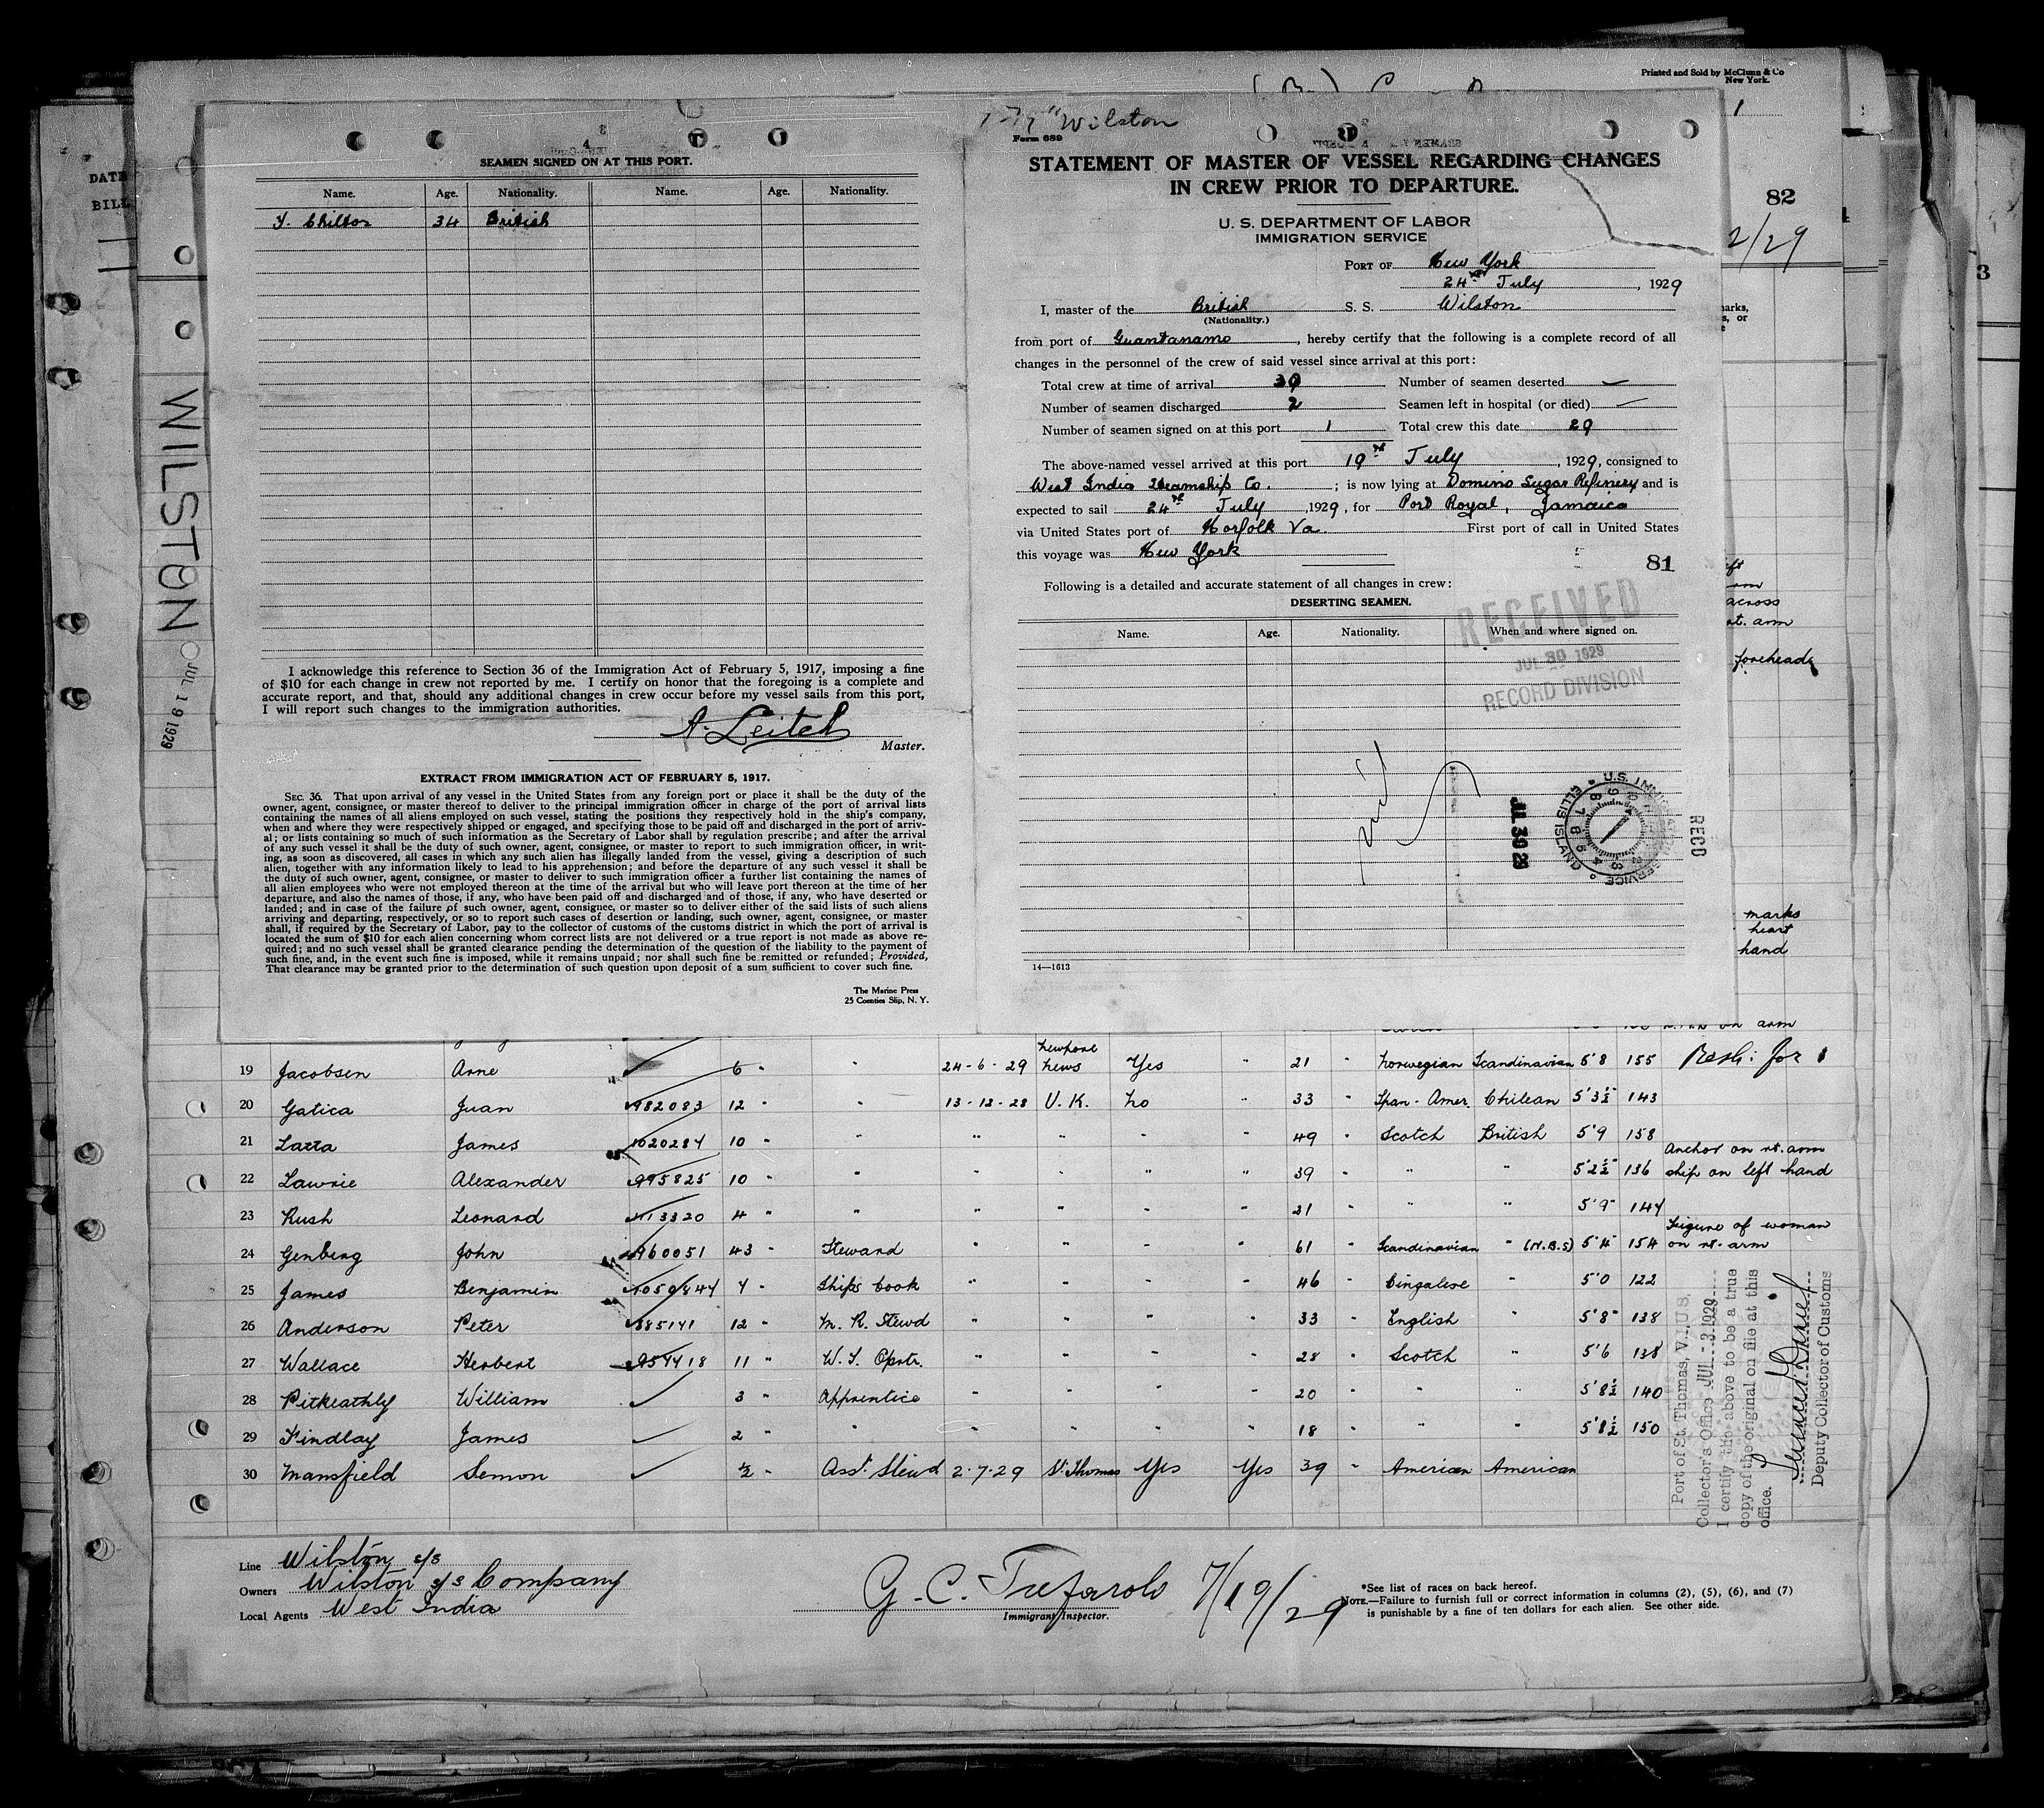 Printed and Sold by McClunn & Co
New York.
1
DATE
BILL
82
2/29
3
WILSTON
JUL 19 1929
4
SEAMEN SIGNED ON AT THIS PORT.
Name. Age. Nationality. Name. Age. Nationality.
F. Chilton 34 British
I acknowledge this reference to Section 36 of the Immigration Act of February 5, 1917, imposing a fine
of $10 for each change in crew not reported by me. I certify on honor that the foregoing is a complete and
accurate report, and that, should any additional changes in crew occur before my vessel sails from this port,
I will report such changes to the immigration authorities.
A. Leitch
Master.
EXTRACT FROM IMMIGRATION ACT OF FEBRUARY 5, 1917.
SEC. 36. That upon arrival of any vessel in the United States from any foreign port or place it shall be the duty of the
owner, agent, consignee, or master thereof to deliver to the principal immigration officer in charge of the port of arrival lists
containing the names of all aliens employed on such vessel, stating the positions they respectively hold in the ship's company,
when and where they were respectively shipped or engaged, and specifying those to be paid off and discharged in the port of arriv-
al; or lists containing so much of such information as the Secretary of Labor shall by regulation prescribe; and after the arrival
of any such vessel it shall be the duty of such owner, agent, consignee, or master to report to such immigration officer, in writ-
ing, as soon as discovered, all cases in which any such alien has illegally landed from the vessel, giving a description of such
alien, together with any information likely to lead to his apprehension; and before the departure of any such vessel it shall be
the duty of such owner, agent, consignee, or master to deliver to such immigration officer a further list containing the names of
all alien employees who were not employed thereon at the time of the arrival but who will leave port thereon at the time of her
departure, and also the names of those, if any, who have been paid off and discharged and of those, if any, who have deserted or
landed; and in case of the failure of such owner, agent, consignee, or master so to deliver either of the said lists of such aliens
arriving and departing, respectively, or so to report such cases of desertion or landing, such owner, agent, consignee, or master
shall, if required by the Secretary of Labor, pay to the collector of customs of the customs district in which the port of arrival is
located the sum of $10 for each alien concerning whom correct lists are not delivered or a true report is not made as above re-
quired; and no such vessel shall be granted clearance pending the determination of the question of the liability to the payment of
such fine, and, in the event such fine is imposed, while it remains unpaid; nor shall such fine be remitted or refunded; Provided,
That clearance may be granted prior to the determination of such question upon deposit of a sum sufficient to cover such fine.
The Marine Press
25 Coenties Slip, N. Y.
Wilston
Form 689
STATEMENT OF MASTER OF VESSEL REGARDING CHANGES
IN CREW PRIOR TO DEPARTURE.
U. S. DEPARTMENT OF LABOR
IMMIGRATION SERVICE
PORT OF New York
24th July, 1929
I, master of the British S. S. Wilston
(Nationality.)
from port of Guantanamo, hereby certify that the following is a complete record of all
changes in the personnel of the crew of said vessel since arrival at this port:
Total crew at time of arrival 30 Number of seamen deserted
Number of seamen discharged 2 Seamen left in hospital (or died)
Number of seamen signed on at this port 1 Total crew this date 29
The above-named vessel arrived at this port 19th July, 1929, consigned to
West India Steamship Co.; is now lying at Domino Sugar Refinery and is
expected to sail 24th July, 1929, for Port Royal, Jamaica
via United States port of Norfolk Va. First port of call in United States
this voyage was New York
81
Following is a detailed and accurate statement of all changes in crew:
DESERTING SEAMEN.
Name. Age. Nationality. When and where signed on.
RECEIVED
JUL 30 1929
RECORD DIVISION
JUL 30 29
U.S. IMMIGRATION SERVICE ELLIS ISLAND
RECD
14—1613
marks,
s, or
e
across
rt. arm
forehead
marks
heart
hand
arm
19 Jacobsen Arne 6 " " 24-6-29 Newport News Yes " 21 " Norwegian Scandinavian 5'8 155
20 Gatica Juan 982083 12 " " 13-12-28 U.K. No " 33 " Span-Amer. Chilean 5'3½ 143
21 Latta James 1020284 10 " " " " " " 49 " Scotch British 5'9 158
22 Lawrie Alexander 995825 10 " " " " " " 39 " " " 5'2½ 136 Anchor on rt. arm ship on left hand
23 Rush Leonard 113320 4 " " " " " " 21 " " " 5'9 144
24 Genberg John 960051 43 " Steward " " " " 61 " Scandinavian " (N.B.S) 5'4 154 Figure of woman on rt. arm
25 James Benjamin 1050844 4 " Ships Cook " " " " 46 " Cingalese " 5'0 122
26 Anderson Peter 885141 12 " M. R. Stewd " " " " 33 " English " 5'8 138
27 Wallace Herbert 954418 11 " W. T. Oprtr. " " " " 28 " Scotch " 5'6 138
28 Pitkeathly William 3 " Apprentice " " " " 20 " " " 5'8½ 140
29 Findlay James 2 " " " " " " 18 " " " 5'8½ 150
30 Mansfield Semon ½ " Asst. Stewd 2-7-29 St. Thomas Yes Yes 39 " American American
Port of St. Thomas, V.I.U.S.
Collector's Office JUL -3 1929
I certify the above to be a true
copy of the original on file at this
office.
Deputy Collector of Customs
Line Wilston s/s
Owners Wilston s/s Company
Local Agents West India
G. C. Tufarolo 7/19/29
Immigrant Inspector.
*See list of races on back hereof.
NOTE.—Failure to furnish full or correct information in columns (2), (5), (6), and (7)
is punishable by a fine of ten dollars for each alien. See other side.